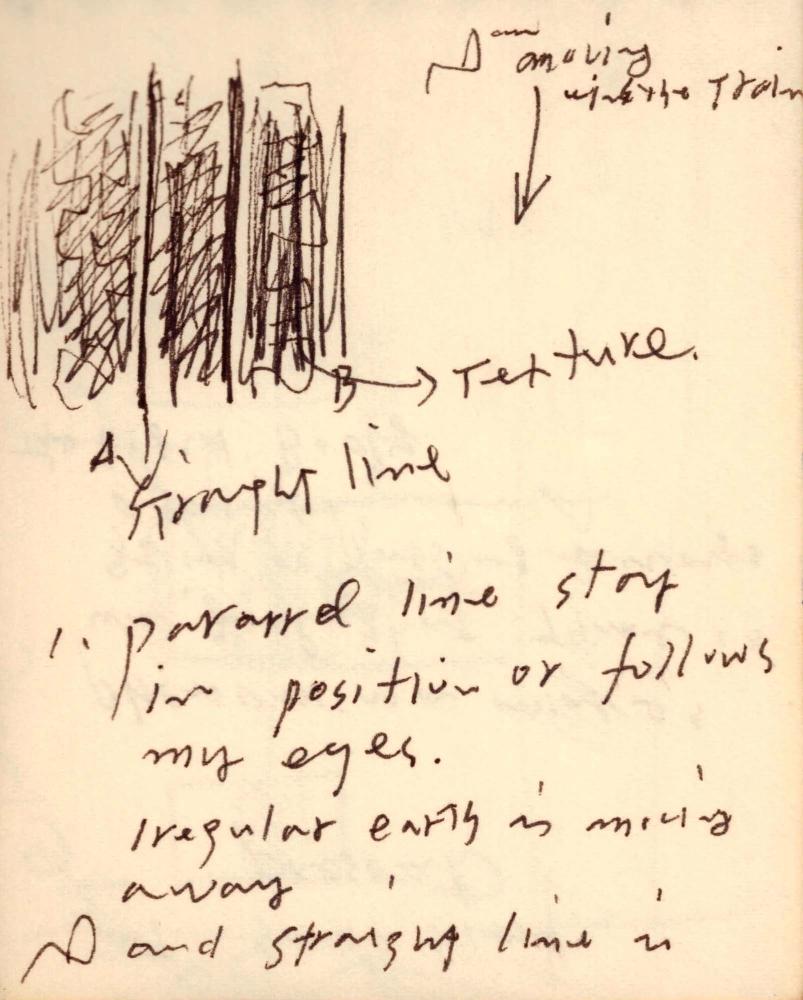 I am moving
with the Train
B → Texture.
A
straight line
1. pararrel line stay
in position or follows
my eyes.
Irregular earth is moving
away
I and straight line is